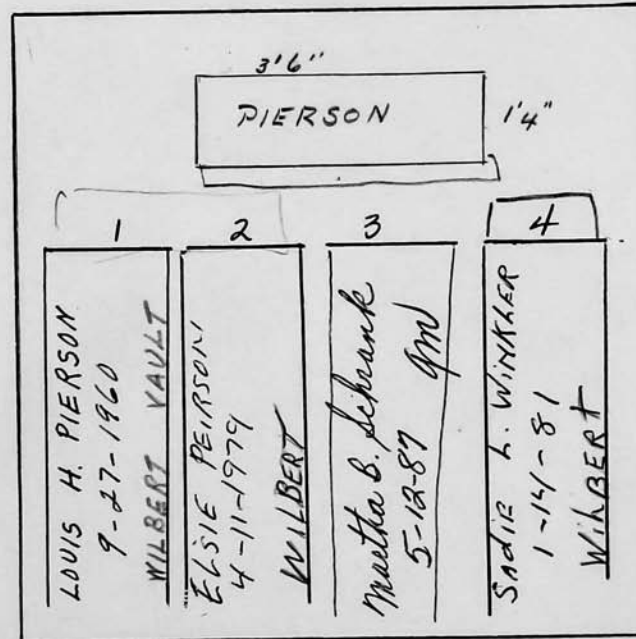 3'6"
PIERSON
1'4"
1
2
3
4
LOUIS H. PIERSON
9-27-1960
WILBERT VAULT
ELSIE PEIRSON
4-11-1979
WILBERT
Martha B. Schrank
5-12-87
gm
SADIE L. WINKLER
1-14-81
WILBERT